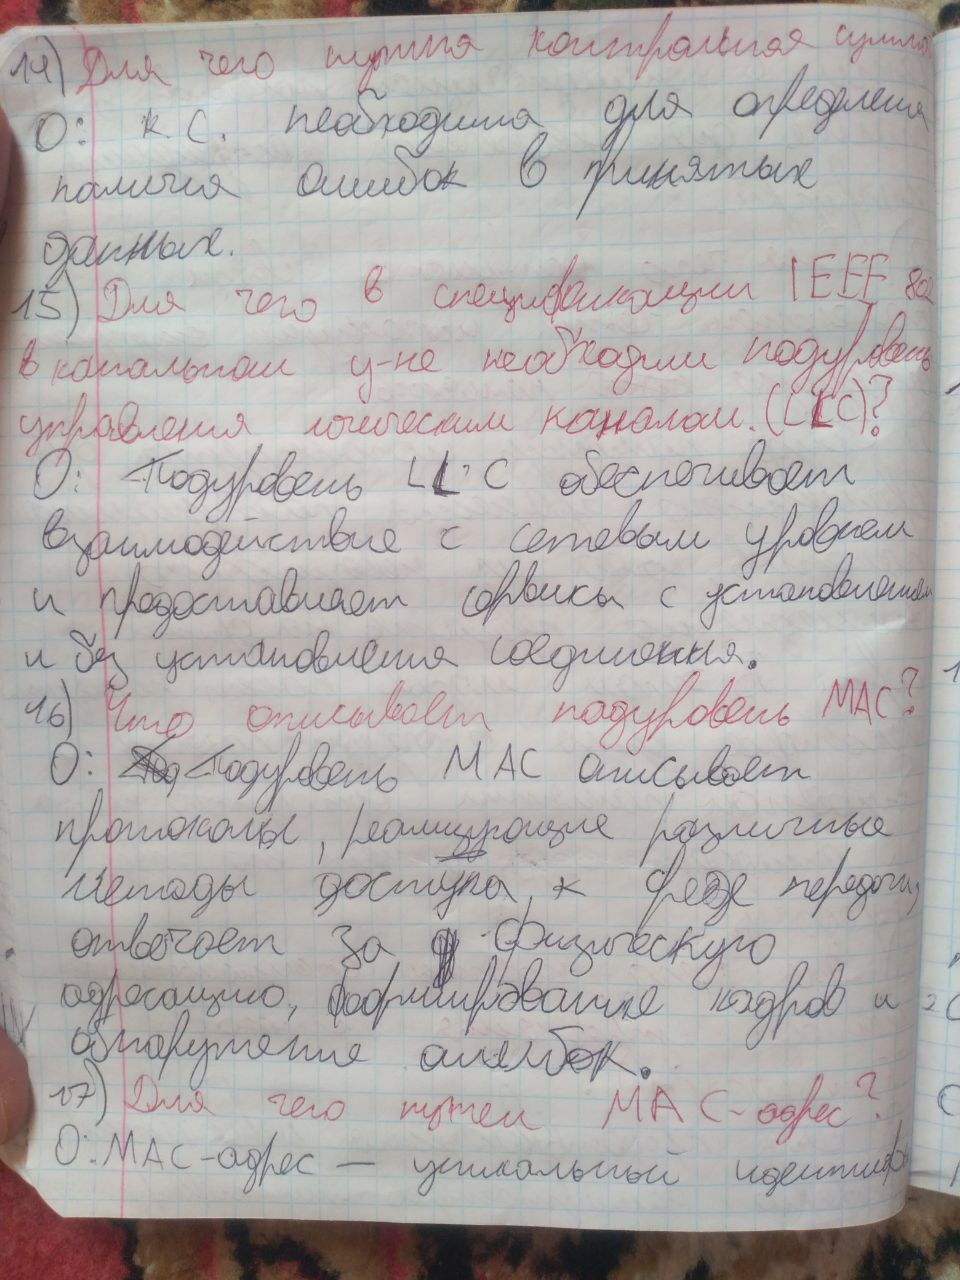 14) Для чего нужна контрольная сумма
О: К.С. необходима для определения
наличия ошибок в принятых
данных.
15) Для чего в спецификации IEEE 802
в канальном ур-не необходим подуровень
управления логическим каналом. (LLC)?
О: Подуровень LLC обеспечивает
взаимодействие с сетевым уровнем
и предоставляет сервисы с установлением
и без установления соединения.
16) Что описывает подуровень MAC?
О: Подуровень MAC описывает
протоколы, реализующие различные
методы доступа к среде передачи,
отвечает за физическую
адресацию, формирование кадров и
обнаружение ошибок.
17) Для чего нужен MAC-адрес?
О: MAC-адрес — уникальный идентиф